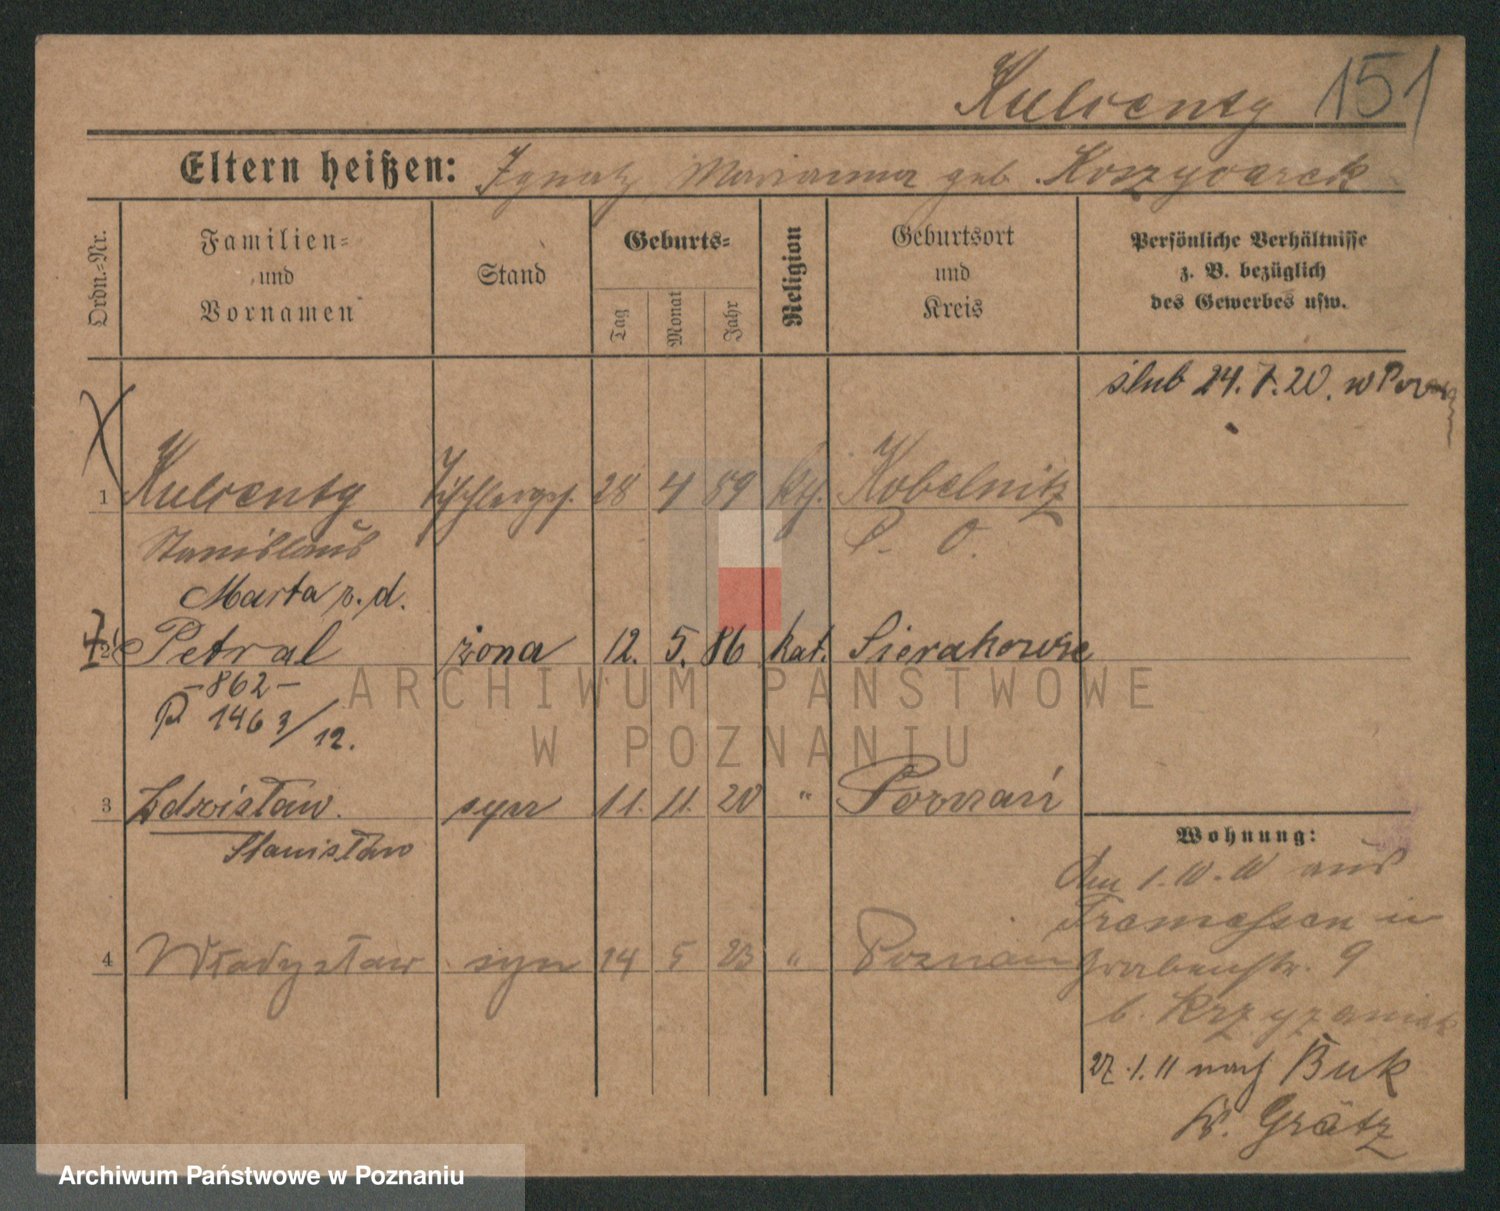 Kulcentg 151
Eltern heißen: Ignatz Marianna geb.
Ordn.-Nr.
Familien- und Vornamen
Stand
Geburts-
Tag
Monat
Jahr
Religion
Geburtsort und Kreis
Persönliche Verhältnisse
z. B. bezüglich
des Gewerbes usw.
ślub 24. 1. 20. w Pozn
1 Tischlerges. 28 4 89 kth. Kobelnitz
Stanislaus P. O.
Marta z. d.
2 Petral żona 12. 5. 86 kat. Sierakowie
-862-
P 1463/12.
3 Zdzisław. syn 11. 11. 20 " Poznań
Stanisław
Wohnung:
aus
Tremessen in
4 Władysław syn 14 5 23 " Poznań
Grabenstr. 9
b. Krzyzaniak
27. 1. 11 nach Buk
Kr. Grätz
ARCHIWUM PAŃSTWOWE
W POZNANIU
Archiwum Państwowe w Poznaniu